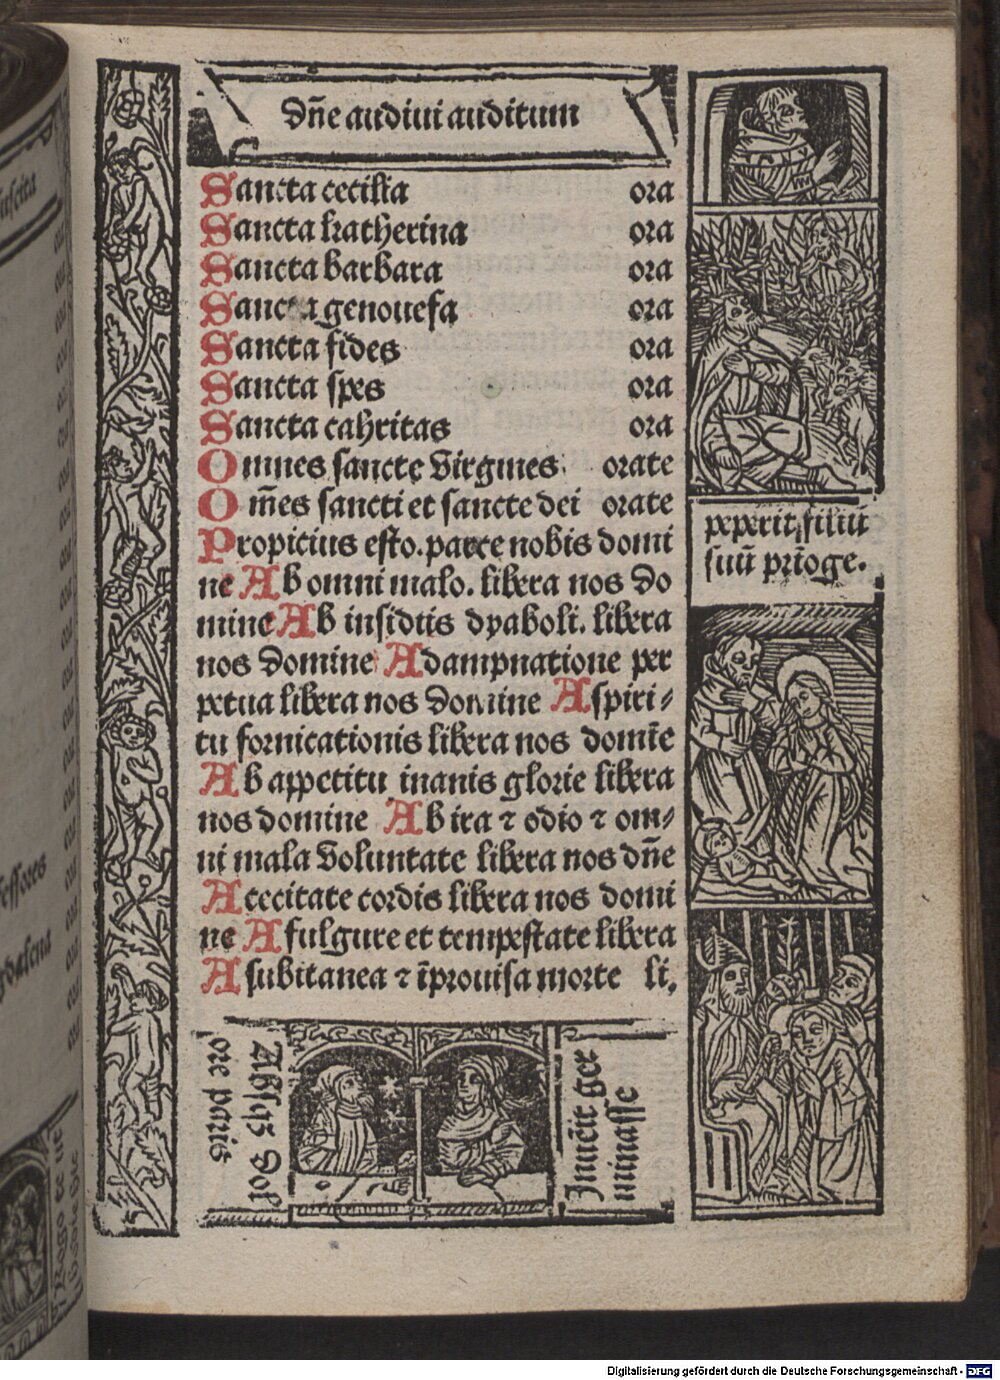 Dn̄e audiui auditum
Sancta cecilia ora
Sancta katherina ora
Sancta barbara ora
Sancta genouefa ora
Sancta fides ora
Sancta spes ora
Sancta cahritas ora
Omnes sancte Virgines orate
Om̄es sancti et sancte dei orate
Propicius esto. parce nobis domi
ne Ab omni malo. libera nos do
mine Ab insidiis dyaboli. libera
nos domine A dampnatione per
petua libera nos domine A spiri⸗
tu fornicationis libera nos domīe
Ab appetitu inanis glorie libera
nos domine Ab ira ⁊ odio ⁊ om⸗
ni mala Voluntate libera nos dn̄e
A cecitate cordis libera nos domi
ne A fulgure et tempestate libera
A subitanea ⁊ īprouisa morte li,
peperit filiū
suū prīoge.
Absqꝫ Dol
ore paris
Inuēit ger
minasse
suscita
Digitalisierung gefördert durch die Deutsche Forschungsgemeinschaft - DFG